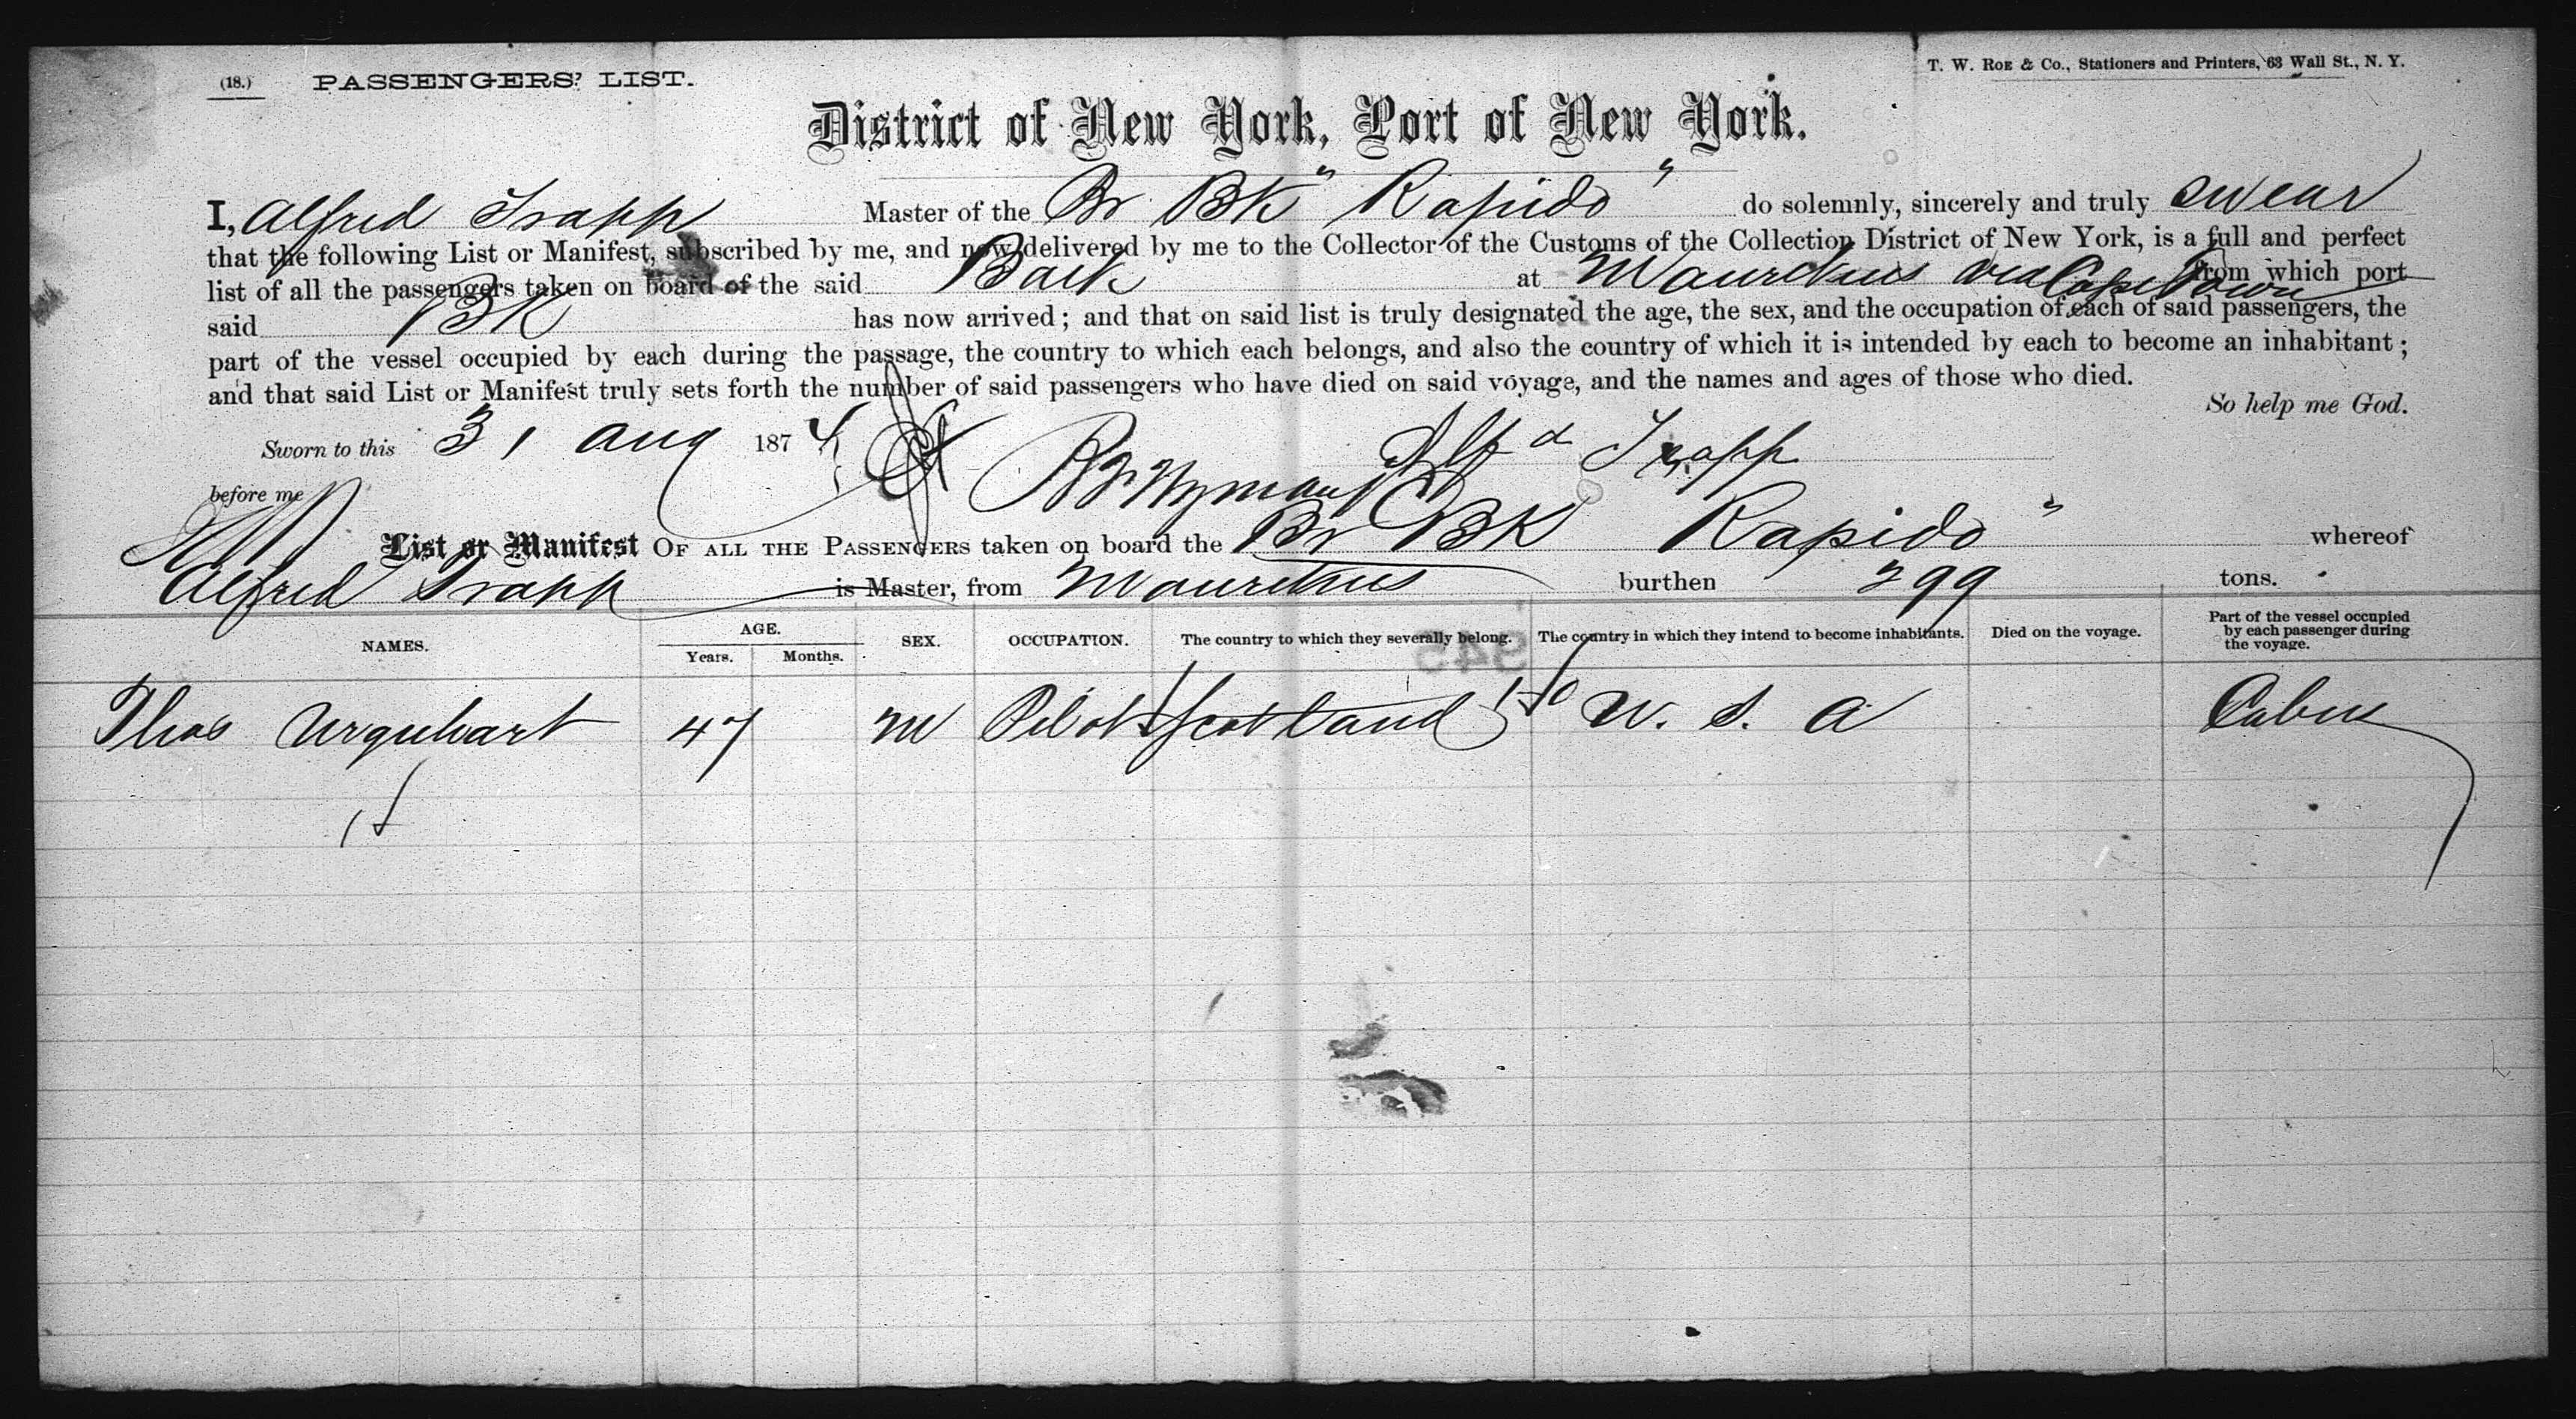 (18.) PASSENGERS' LIST.
T. W. ROE & Co., Stationers and Printers, 63 Wall St., N. Y.
District of New York, Port of New York.
I, Alfred Trapp Master of the Br Bk "Rapido" do solemnly, sincerely and truly swear
that the following List or Manifest, subscribed by me, and now delivered by me to the Collector of the Customs of the Collection District of New York, is a full and perfect
list of all the passengers taken on board of the said Bark at Mauritius via Cape Town from which port
said BK has now arrived; and that on said list is truly designated the age, the sex, and the occupation of each of said passengers, the
part of the vessel occupied by each during the passage, the country to which each belongs, and also the country of which it is intended by each to become an inhabitant;
and that said List or Manifest truly sets forth the number of said passengers who have died on said voyage, and the names and ages of those who died.
So help me God.
Sworn to this 31 Aug 187
Alfd Trapp
before me
List or Manifest OF ALL THE PASSENGERS taken on board the Br BK Rapido" whereof
Alfred Trapp is Master, from Mauritius burthen 399 tons.
NAMES. AGE. Years. Months. SEX. OCCUPATION. The country to which they severally belong. The country in which they intend to become inhabitants. Died on the voyage. Part of the vessel occupied by each passenger during the voyage.
Thos Urquhart 47 M Pilot Scotland U. S. A Cabin